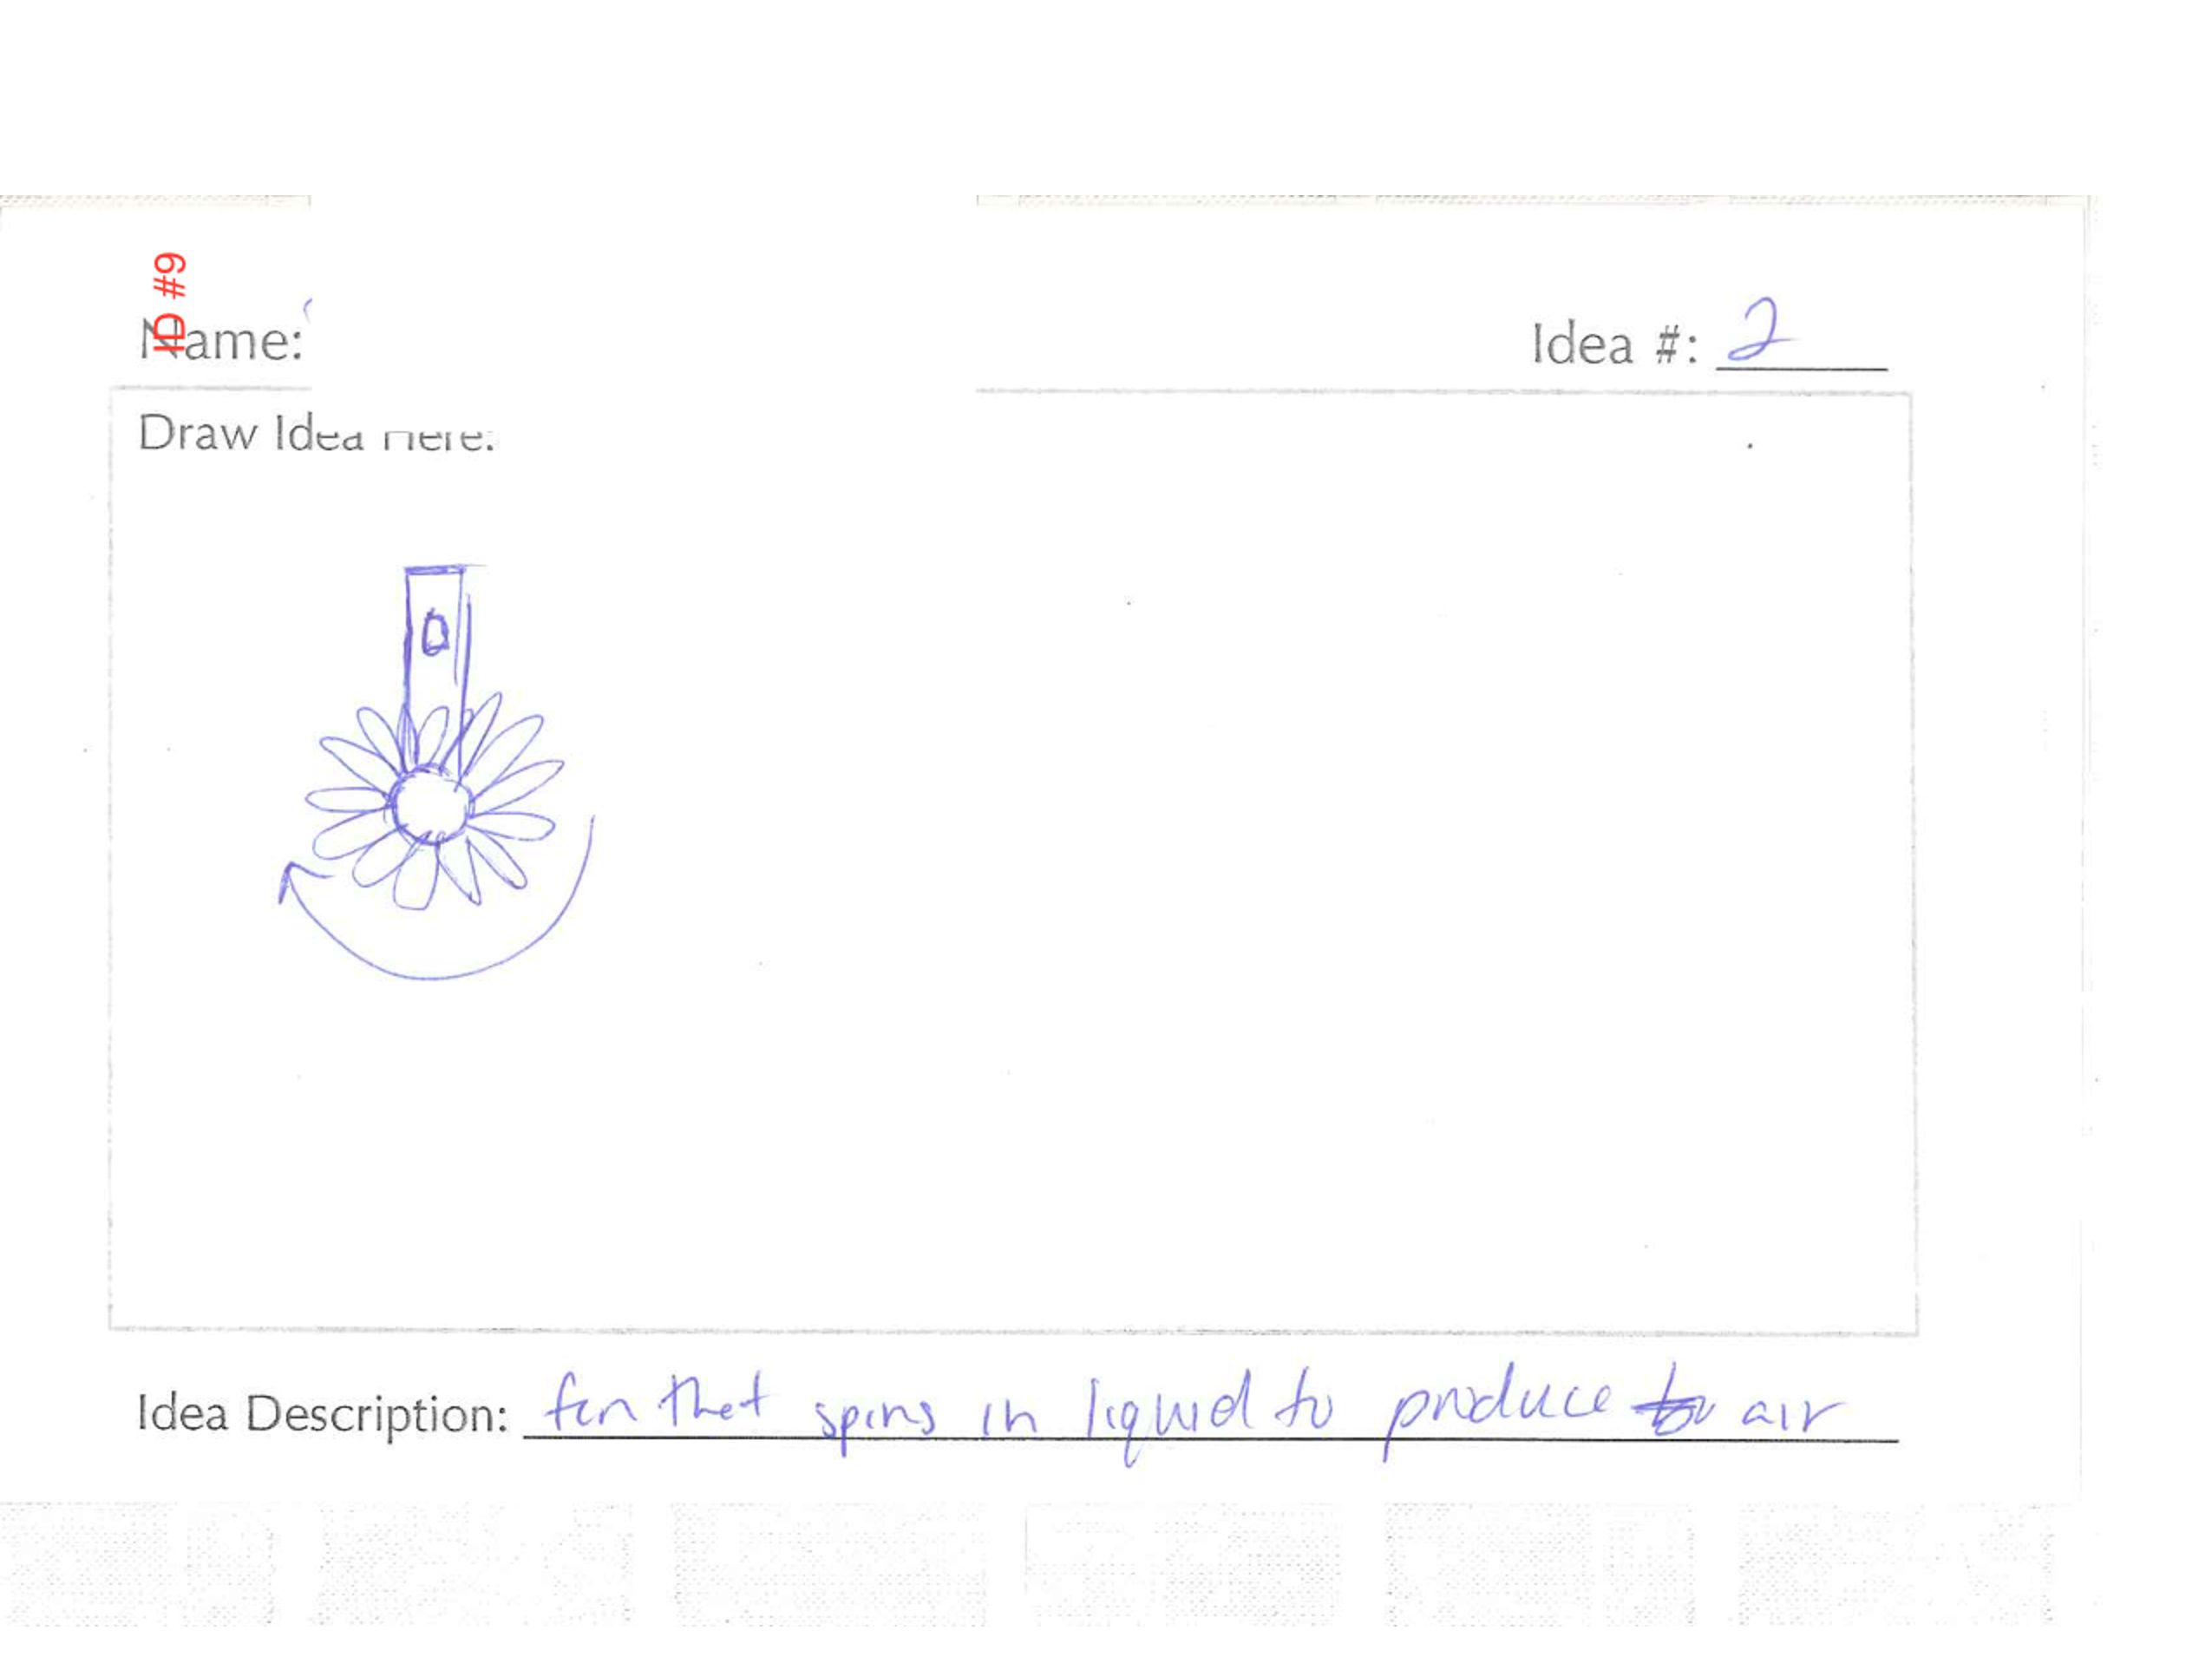 ID #9
Name:
Idea #: 2
Draw Idea Here:
Idea Description: fan that spins in liquid to produce air